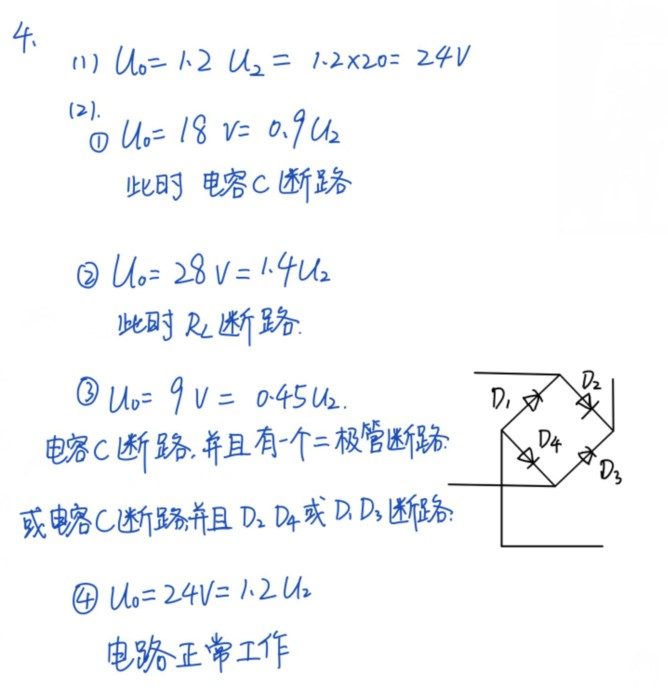 4.
(1) U₀=1.2 U₂ = 1.2×20= 24V
(2).
① U₀= 18 V= 0.9U₂
此时 电容C断路
② U₀= 28 V=1.4U₂
此时 RL断路.
③ U₀= 9 V = 0.45U₂.
电容C断路,并且有一个二极管断路
或电容C断路,并且 D₂ D₄ 或 D₁ D₃ 断路.
D₁
D₂
D₄
D₃
④ U₀=24V=1.2U₂
电路正常工作